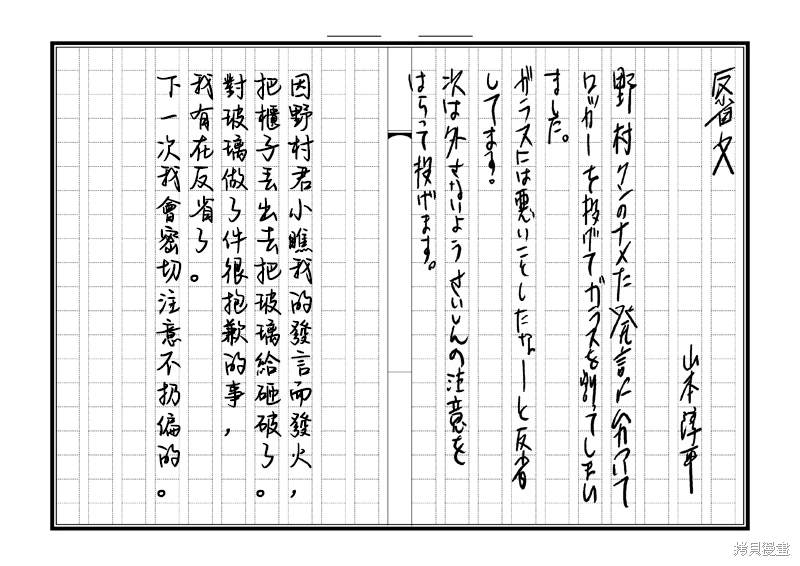 反省文
山本淳平
野村クンのナメた発言に ムカついて
ロッカーを投げてガラスを割ってしまい
ました。
ガラスには悪いことしたなーと反省
してます。
次は外さないようさいしんの注意を
はらって投げます。
因野村君小瞧我的發言而發火，
把櫃子丟出去把玻璃給砸破了。
對玻璃做了件很抱歉的事，
我有在反省了。
下一次我會密切注意不扔偏的。
拷貝漫畫